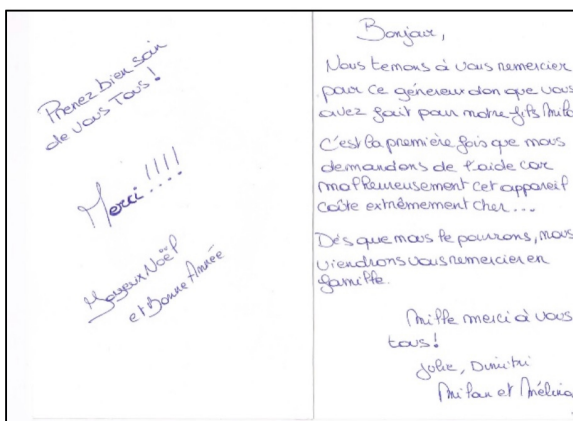 Prenez bien soin
de vous Tous !
Merci !!!!
Joyeux Noël
et Bonne Année
Bonjour,
Nous tenons à vous remercier
pour ce généreux don que vous
avez fait pour notre fils
C'est la première fois que nous
demandons de l'aide car
malheureusement cet appareil
coûte extrêmement cher...
Dès que nous le pourrons, nous
viendrons vous remercier en
famille.
Mille merci à vous
tous !
Julie, Dimitri
Milan et Mélina